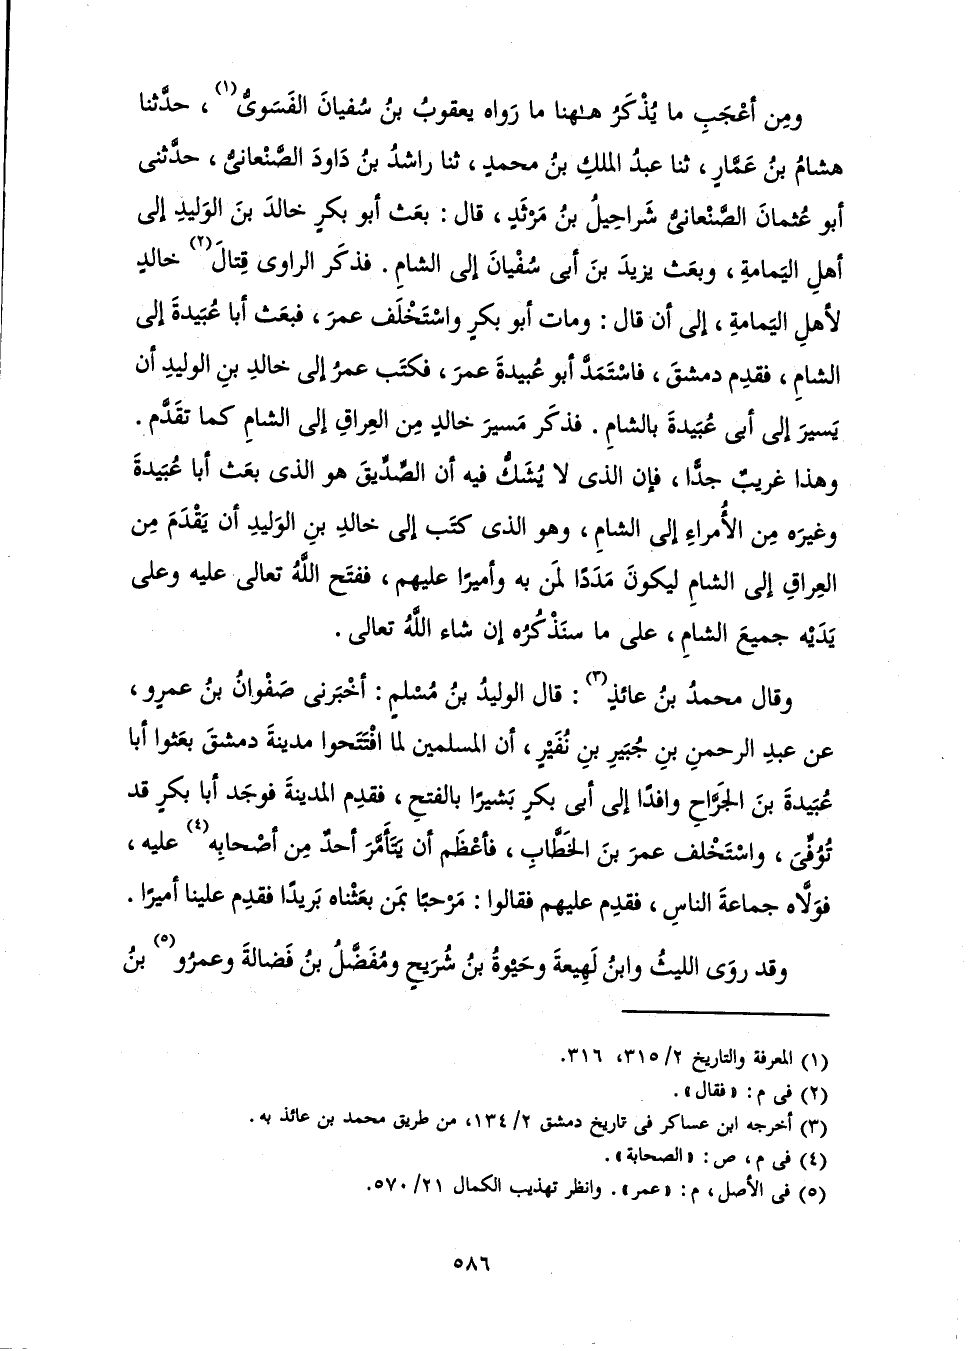 ومِن أعْجَبِ ما يُذْكَرُ هـٰهنا ما رَواه يعقوبُ بنُ سُفيانَ الفَسَوىُّ(١) ، حدَّثنا
هشامُ بنُ عَمَّارٍ ، ثنا عبدُ الملكِ بنُ محمدٍ ، ثنا راشدُ بنُ دَاودَ الصَّنْعانىُّ ، حدَّثنى
أبو عُثمانَ الصَّنْعانىُّ شَراحِيلُ بنُ مَرْثَدٍ ، قال : بعَث أبو بكرٍ خالدَ بنَ الوَليدِ إلى
أهلِ اليَمامةِ ، وبعَث يزيدَ بنَ أبى سُفْيانَ إلى الشامِ . فذكَر الراوى قِتالَ(٢) خالدٍ
لأهلِ اليَمامةِ ، إلى أن قال : ومات أبو بكرٍ واسْتَخْلَف عمرَ ، فبعَث أبا عُبَيدةَ إلى
الشامِ ، فقدِم دمشقَ ، فاسْتَمَدَّ أبو عُبيدةَ عمرَ ، فكتَب عمرُ إلى خالدِ بنِ الوليدِ أن
يَسيرَ إلى أبى عُبَيدةَ بالشامِ . فذكَر مَسيرَ خالدٍ مِن العِراقِ إلى الشامِ كما تقَدَّم .
وهذا غريبٌ جدًّا ، فإن الذى لا يُشَكُّ فيه أن الصِّدِّيقَ هو الذى بعَث أبا عُبَيدةَ
وغيرَه مِن الأُمراءِ إلى الشامِ ، وهو الذى كتَب إلى خالدِ بنِ الوَليدِ أن يَقْدَمَ مِن
العِراقِ إلى الشامِ ليكونَ مَدَدًا لمَن به وأميرًا عليهم ، ففتَح اللَّهُ تعالى عليه وعلى
يَدَيْه جميعَ الشامِ ، على ما سنَذْكُرُه إن شاء اللَّهُ تعالى .
وقال محمدُ بنُ عائذٍ(٣) : قال الوليدُ بنُ مُسْلمٍ : أخْبَرنى صَفْوانُ بنُ عمرٍو ،
عن عبدِ الرحمنِ بنِ جُبَيرِ بنِ نُفَيْرٍ ، أن المسلمين لما افْتَتَحوا مدينةَ دمشقَ بعَثوا أبا
عُبَيدةَ بنَ الجَرَّاحِ وافدًا إلى أبى بكرٍ بَشيرًا بالفتحِ ، فقدِم المدينةَ فوجَد أبا بكرٍ قد
تُوُفِّىَ ، واسْتَخْلف عمرَ بنَ الخَطَّابِ ، فأعْظَم أن يَتَأَمَّرَ أحدٌ مِن أصْحابِه(٤) عليه ،
فوَلَّاه جماعةَ الناسِ ، فقدِم عليهم فقالوا : مَرْحبًا بمَن بعَثْناه بَريدًا فقدِم علينا أميرًا .
وقد روَى الليثُ وابنُ لَهِيعةَ وحَيْوةُ بنُ شُرَيحٍ ومُفَضَّلُ بنُ فَضالةَ وعمرُو(٥) بنُ
(١) المعرفة والتاريخ ٢/ ٣١٥، ٣١٦.
(٢) فى م: «فقال» .
(٣) أخرجه ابن عساكر فى تاريخ دمشق ٢/ ١٣٤، من طريق محمد بن عائذ به .
(٤) فى م، ص: «الصحابة» .
(٥) فى الأصل، م: «عمر» . وانظر تهذيب الكمال ٢١/ ٥٧٠.
٥٨٦